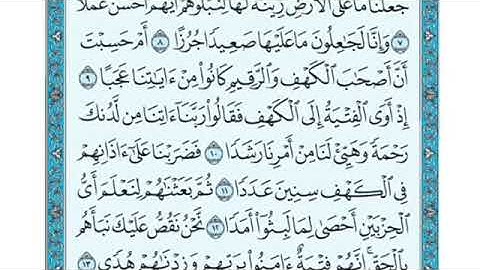 جَعَلْنَا مَا عَلَى ٱلْأَرْضِ زِينَةً لَّهَا لِنَبْلُوَهُمْ أَيُّهُمْ أَحْسَنُ عَمَلًا
٧ وَإِنَّا لَجَٰعِلُونَ مَا عَلَيْهَا صَعِيدًا جُرُزًا ٨ أَمْ حَسِبْتَ
أَنَّ أَصْحَٰبَ ٱلْكَهْفِ وَٱلرَّقِيمِ كَانُوا۟ مِنْ ءَايَٰتِنَا عَجَبًا ٩
إِذْ أَوَى ٱلْفِتْيَةُ إِلَى ٱلْكَهْفِ فَقَالُوا۟ رَبَّنَآ ءَاتِنَا مِن لَّدُنكَ
رَحْمَةً وَهَيِّئْ لَنَا مِنْ أَمْرِنَا رَشَدًا ١٠ فَضَرَبْنَا عَلَىٰٓ ءَاذَانِهِمْ
فِى ٱلْكَهْفِ سِنِينَ عَدَدًا ١١ ثُمَّ بَعَثْنَٰهُمْ لِنَعْلَمَ أَىُّ
ٱلْحِزْبَيْنِ أَحْصَىٰ لِمَا لَبِثُوٓا۟ أَمَدًا ١٢ نَّحْنُ نَقُصُّ عَلَيْكَ نَبَأَهُم
بِٱلْحَقِّ ۚ إِنَّهُمْ فِتْيَةٌ ءَامَنُوا۟ بِرَبِّهِمْ وَزِدْنَٰهُمْ هُدًى ١٣